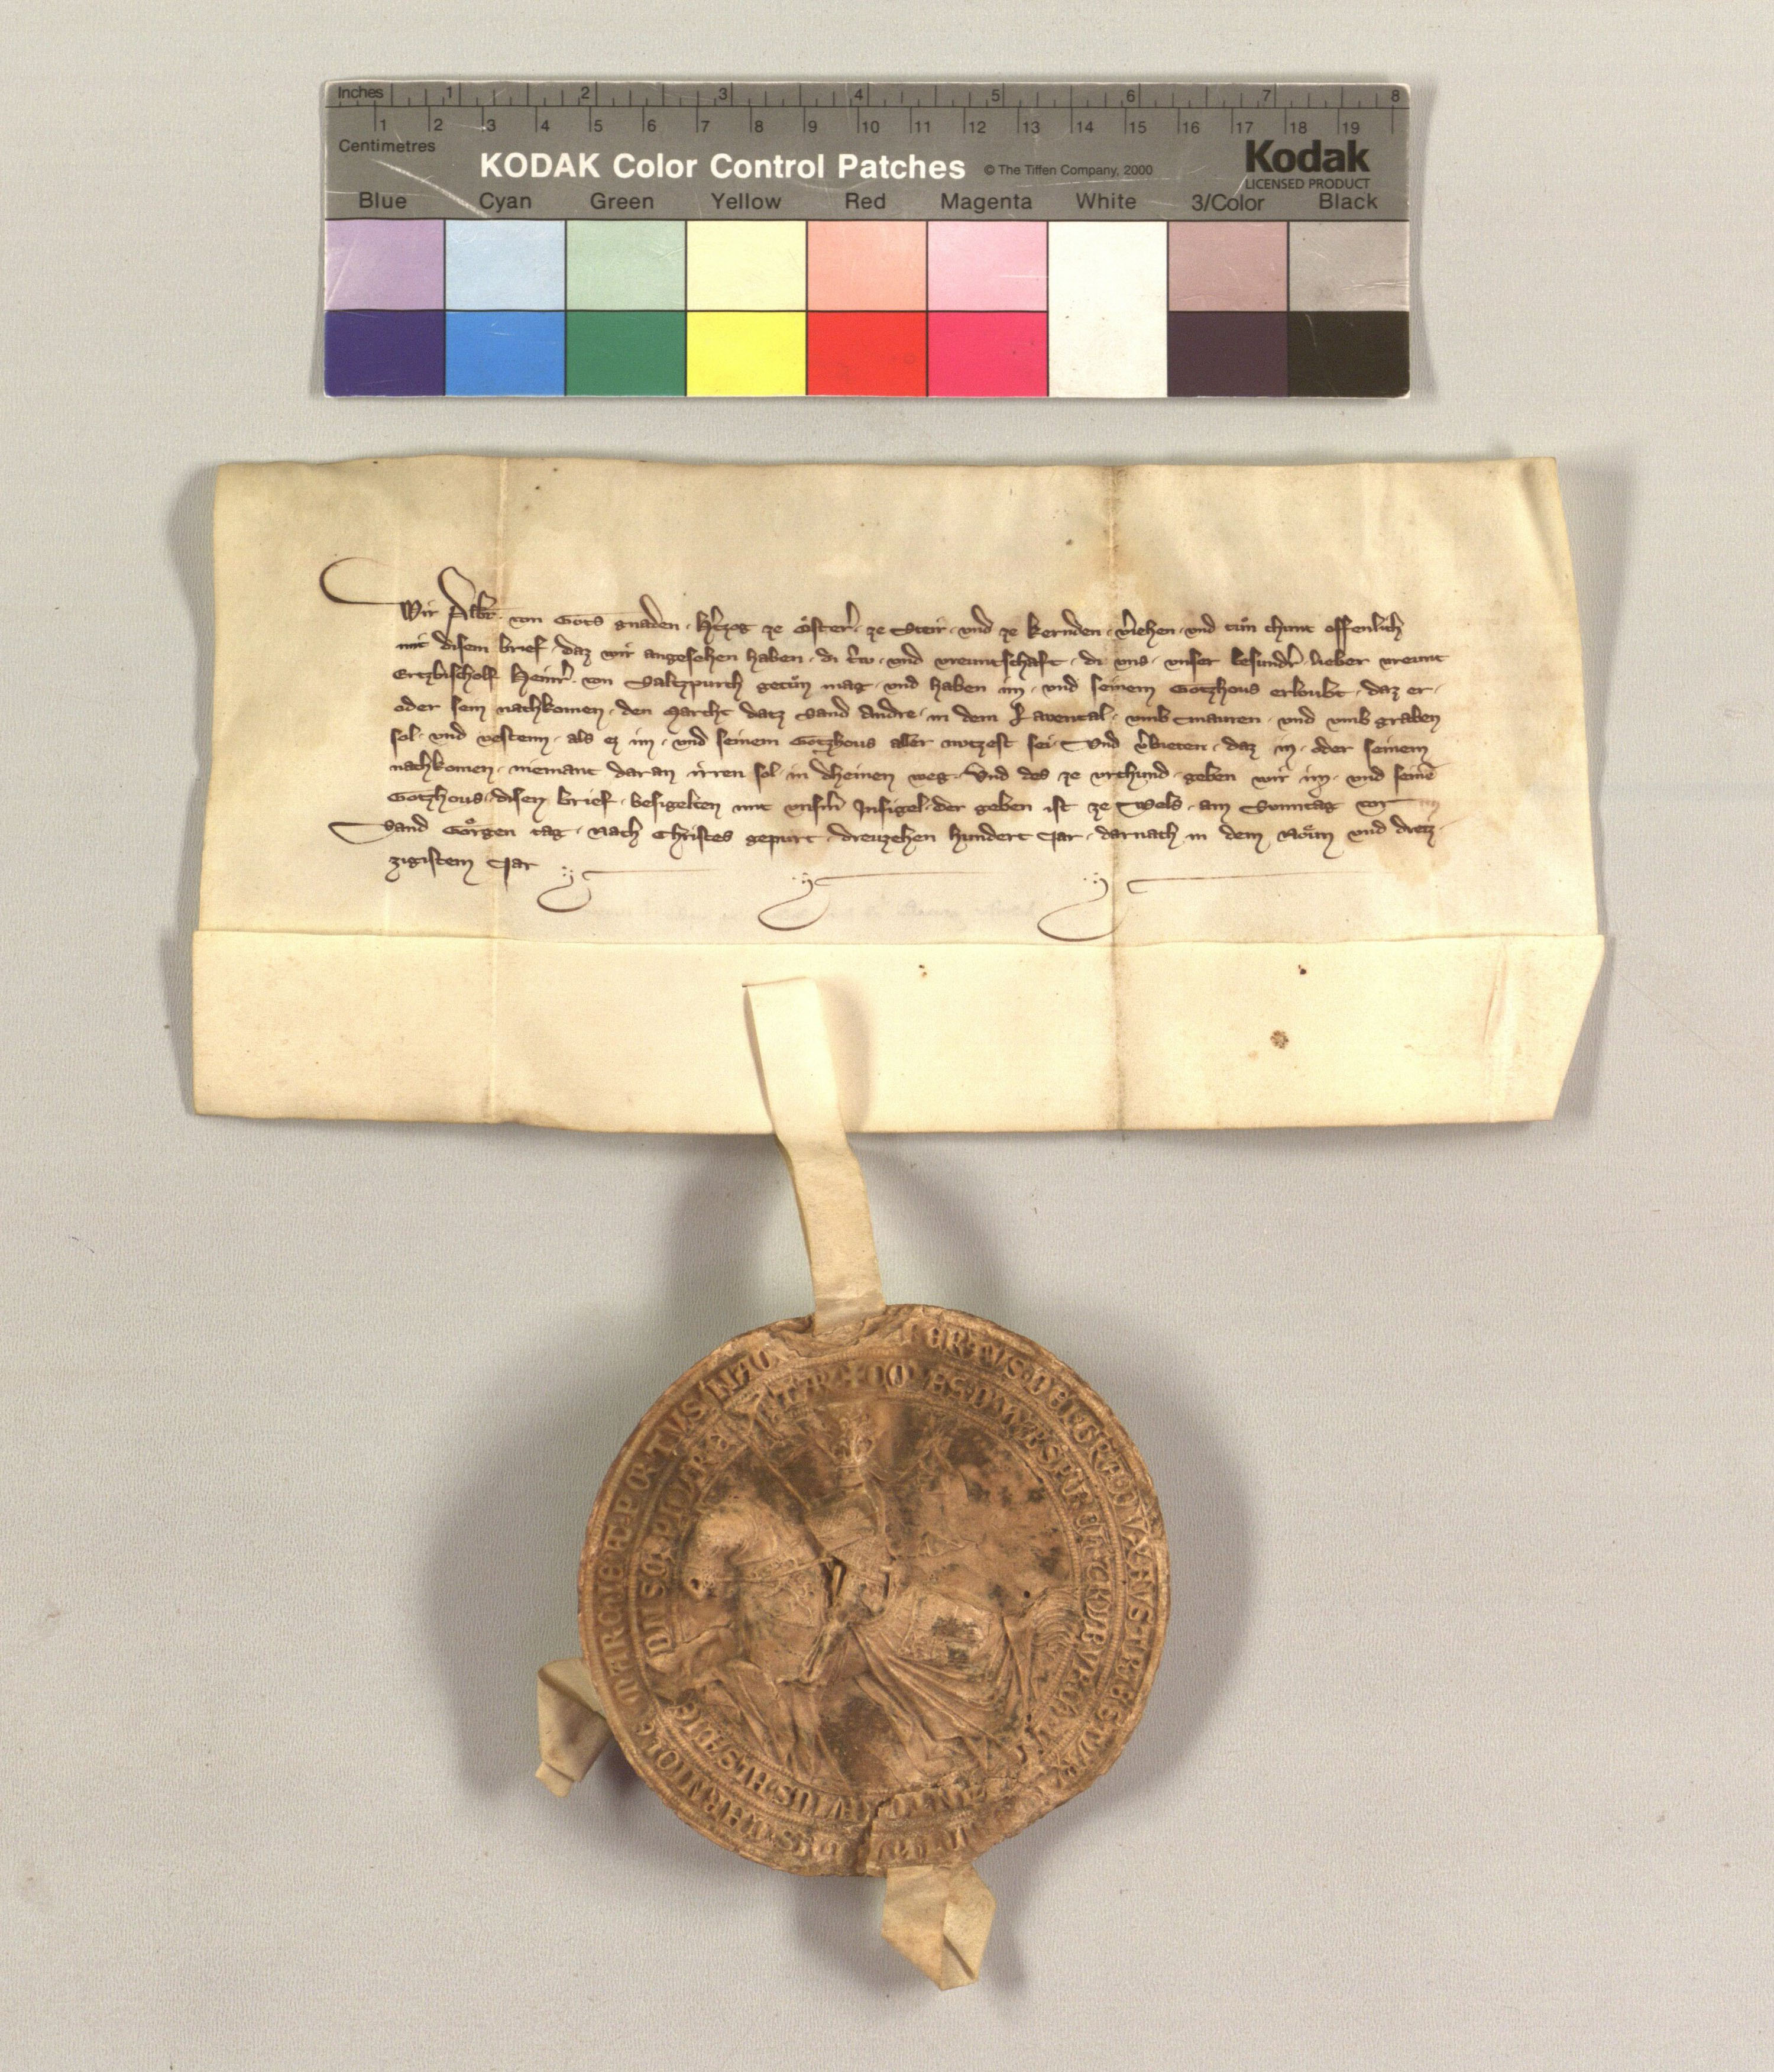 Inches 1 2 3 4 5 6 7 8
1 2 3 4 5 6 7 8 9 10 11 12 13 14 15 16 17 18 19
Centimetres
KODAK Color Control Patches © The Tiffen Company, 2000 Kodak
LICENSED PRODUCT
Blue Cyan Green Yellow Red Magenta White 3/Color Black
Wir Albr. von Gots gnaden. Hertzog ze Öster. ze Steir. und ze kernden. v̾iehen. und tůn chunt offenlich
mit disem brief. daz wir angesehen haben. di trw. und vreuntschaft. di uns. unser besundr̾ lieber vreunt
Ertzbischolf Heinr̾. von Saltzpurch getůn mag. und haben im. und seinem Gotzhous erloubt. daz er.
oder sein nachkomen. den Marcht datz Sand Andre. in dem Lavental. umb mauren. und umb graben
sol. und vesten. als ez im. und seinem Gotzhous aller nutzest sei. Und v̾bieten. daz in. oder seinem
nachkomen. niemant daran irren sol. in dheinen weg. Und des ze urchund. geben wir im. und seinē
Gotzhous. disen brief. besigelten mit unsm̾ Insigel. der geben ist ze Wels. am Sunntag vor
Sand Görgen tag. nach Christes gepurt. dreuzehen hundert Jar. darnach in dem Nöun und dreiz-
zigistem Jar
ERTVS DEI GRA DVX AVSTRIE STIR
DNS CARNIOLE MARCHIE ET PORTVS NAO